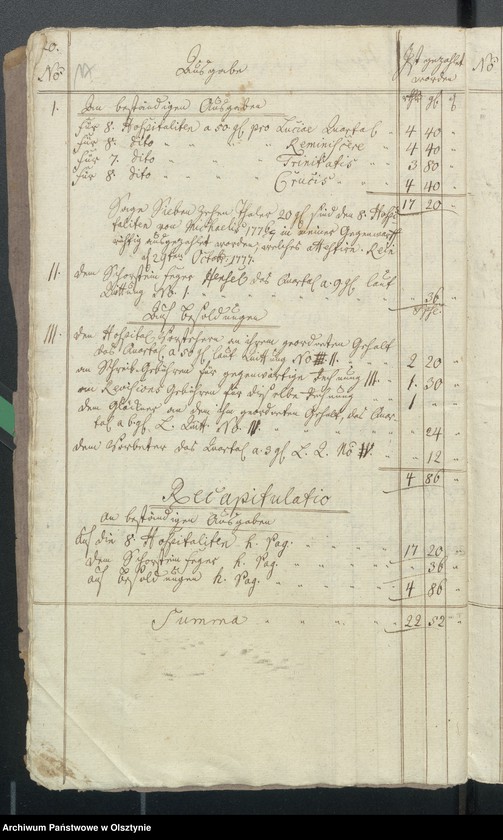 No Ausgabe Ist gezahlt worden No
rthl gl
I. An beständigen Ausgaben
Für 8. Hospitaliten a 50 gl pro Luciae Quartal 4 40
für 8. dito Reminiscere 4 40
für 7. dito Trinitatis 3 80
für 8. dito Crucis 4 40
17 20
Sage Sieben Zehen Thaler 20 gl sind den 8. Hospi-
taliten von Michaelis in meiner Gegenwart
richtig ausgezahlt worden, welches attestire.
d 29ten Octobr. 1777.
II. dem Schorsteinfeger Hensel das Quartal a 9 gl laut
Quittung No. 1. 36
Auf Besoldungen
III. dem Hospital Vorsteher an ihrem geordneten Gehalt
das Quartal a 50 gl laut Quittung No II. 2 20
an Schreib-Gebühren für gegenwärtige Rechnung III. 1 30
an Revisions Gebühren für dieselbe Rechnung 1
dem Glöckner an dem ihm geordneten Gehalt das Quar-
tal a 6 gl. L. Quit. No. IV. 24
dem Vorbeter das Quartal a 3 gl L. Q. No V. 12
4 86
Recapitulatio
An beständigen Ausgaben
Auf die 8. Hospitaliten h. Pag. 17 20
dem Schorsteinfeger h. Pag. 36
auf Besoldungen h. Pag. 4 86
Summa 22 52
Archiwum Państwowe w Olsztynie